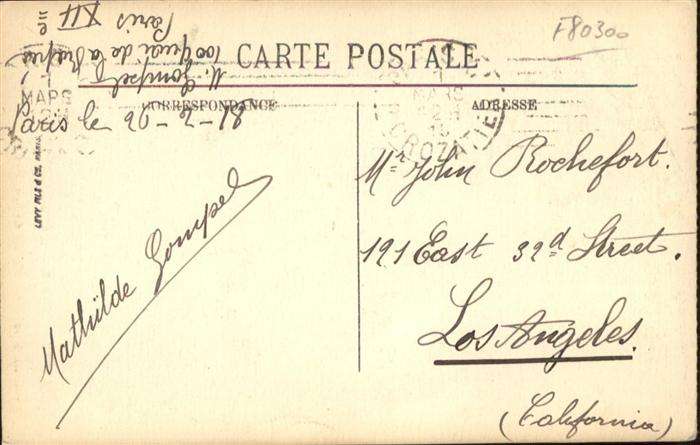 F80300
CARTE POSTALE
CORRESPONDANCE
ADRESSE
M. Gompel
100 Quai de la Rapée
Paris
XII me
MARS
MARS
CROZATIER
Paris le 26-2-18
LEVY FILS & CIE, PARIS
Mathilde Gompel
Mr John Rochefort.
121 East 32d Street.
Los Angeles.
(California)